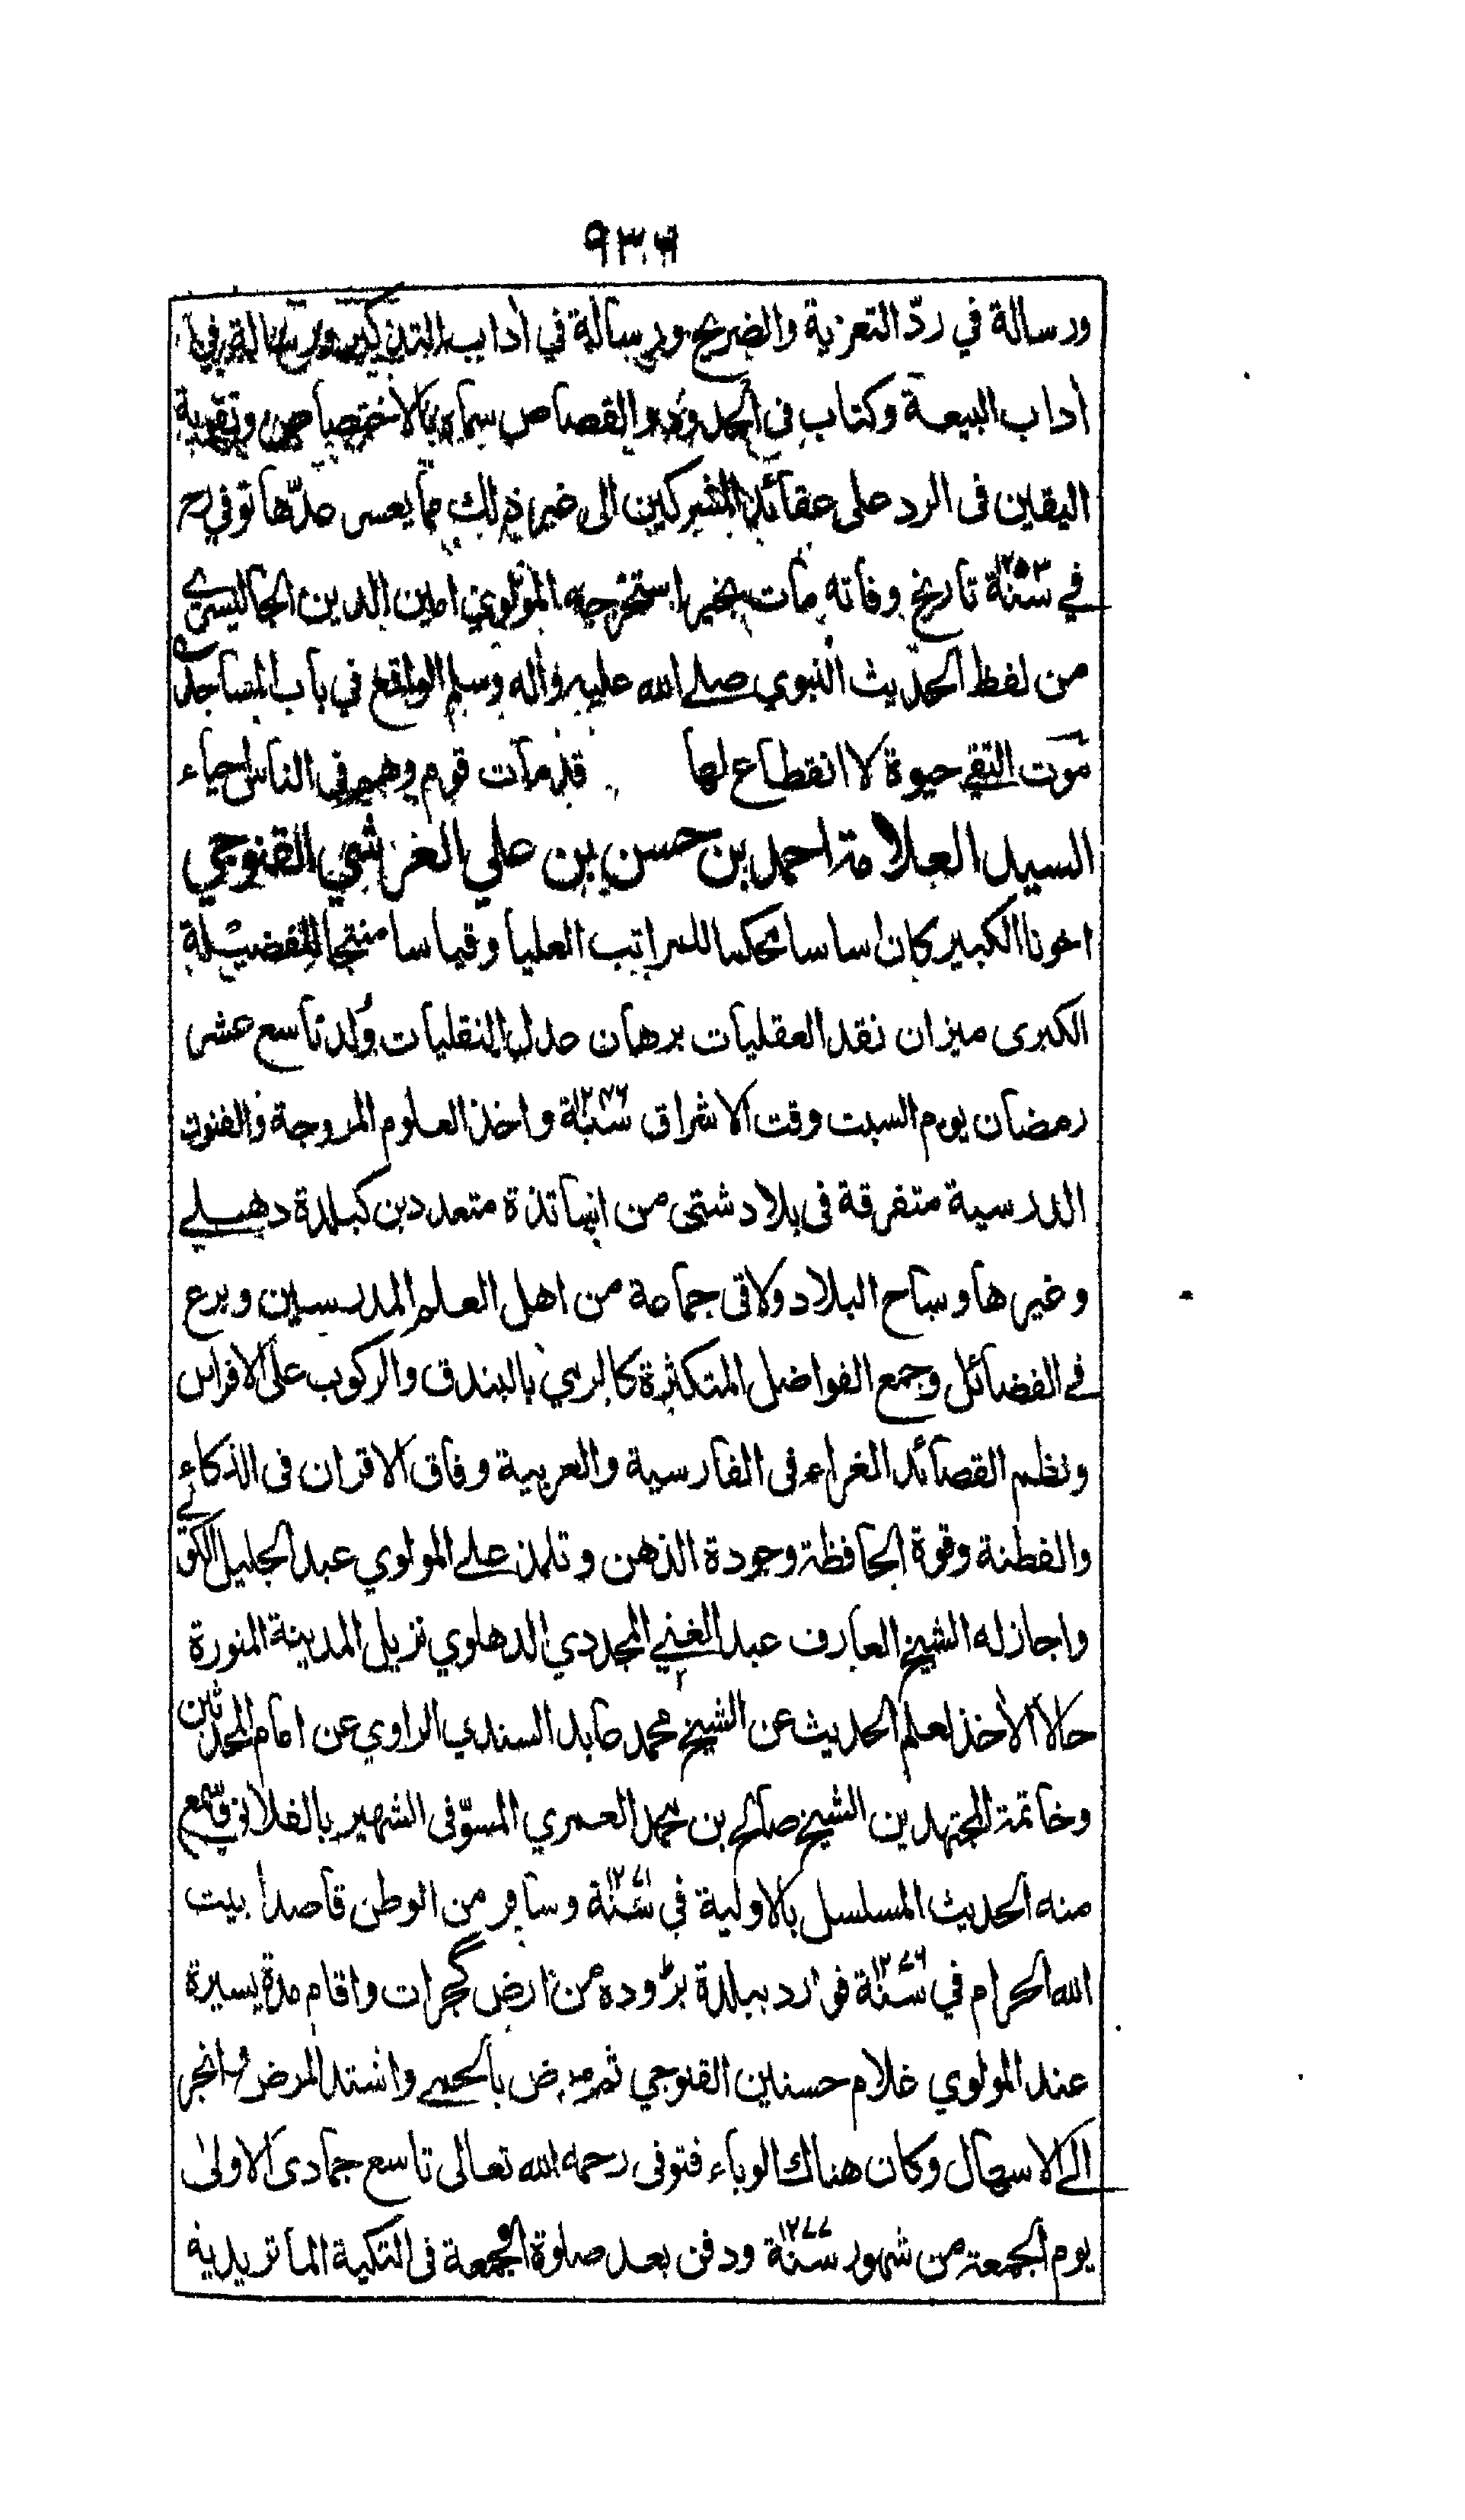 ٩٣٦
ورسالة في ردّ التعزية والضريح ورسالة في أداب التذكير ورسالة في
أداب البيعة وكتاب في الحدود والقصاص سماه بالاختصاص وتقوية
اليقين في الرد على عقائد المشركين الى غير ذلك مما يعسر عدّها توفي رح
في سنة ١٢٥٣ تاريخ وفاته مات بخير استخرجه المولوي امين الدين الجاليسري
من لفظ الحديث النبوي صلے الله عليه وأله وسلم الواقع في باب المساجد ع
موت التقي حيوة لا انقطاع لها قد مات قوم وهم في الناس احياء
السيد العلامة احمد بن حسن بن علي العرشي القنوجي
اخونا الكبير كان اساسا محكما للمراتب العليا وقياسا منتجا للفضيلة
الكبرى ميزان نقد العقليات برهان عدل النقليات ولد تاسع عشر
رمضان يوم السبت وقت الاشراق سنة ١٢٤٦ واخذ العلوم المروجة والفنون
الدرسية متفرقة في بلاد شتى من اساتذة متعددين كبلدة دهلے
وغيرها وساح البلاد ولاقى جماعة من اهل العلم المدرسين وبرع
في الفضائل وجمع الفواضل المتكثرة كالرمي بالبندق والركوب على الافراس
ونظم القصائد الغراء في الفارسية والعربية وفاق الاقران في الذكاء
والفطنة وقوة الحافظة وجودة الذهن وتلمذ علے المولوي عبد الجليل الكوئلے
واجاز له الشيخ العارف عبد الغني المجددي الدهلوي نزيل المدينة المنورة
حالا الأخذ لعلم الحديث عن الشيخ محمد عابد السندي الراوي عن امام المحدثين
وخاتمة المجتهدين الشيخ صالح بن محمد العمري المسوّفي الشهير بالفلاني وسمع
منه الحديث المسلسل بالاولية في سنة ١٢٧١ وسافر من الوطن قاصدا بيت
الله الحرام في سنة ١٢٧٦ فورد ببلدة بڑوده من ارض گجرات واقام مدة يسيرة
عند المولوي غلام حسنين القنوجي ثم مرض بالحمے واشتد المرض وانجر
الى الاسهال وكان هناك الوباء فتوفى رحمه الله تعالى تاسع جمادى الاولىٰ
يوم الجمعة من شهور سنة ١٢٧٧ ودفن بعد صلوة الجمعة في التكية الماتريدية